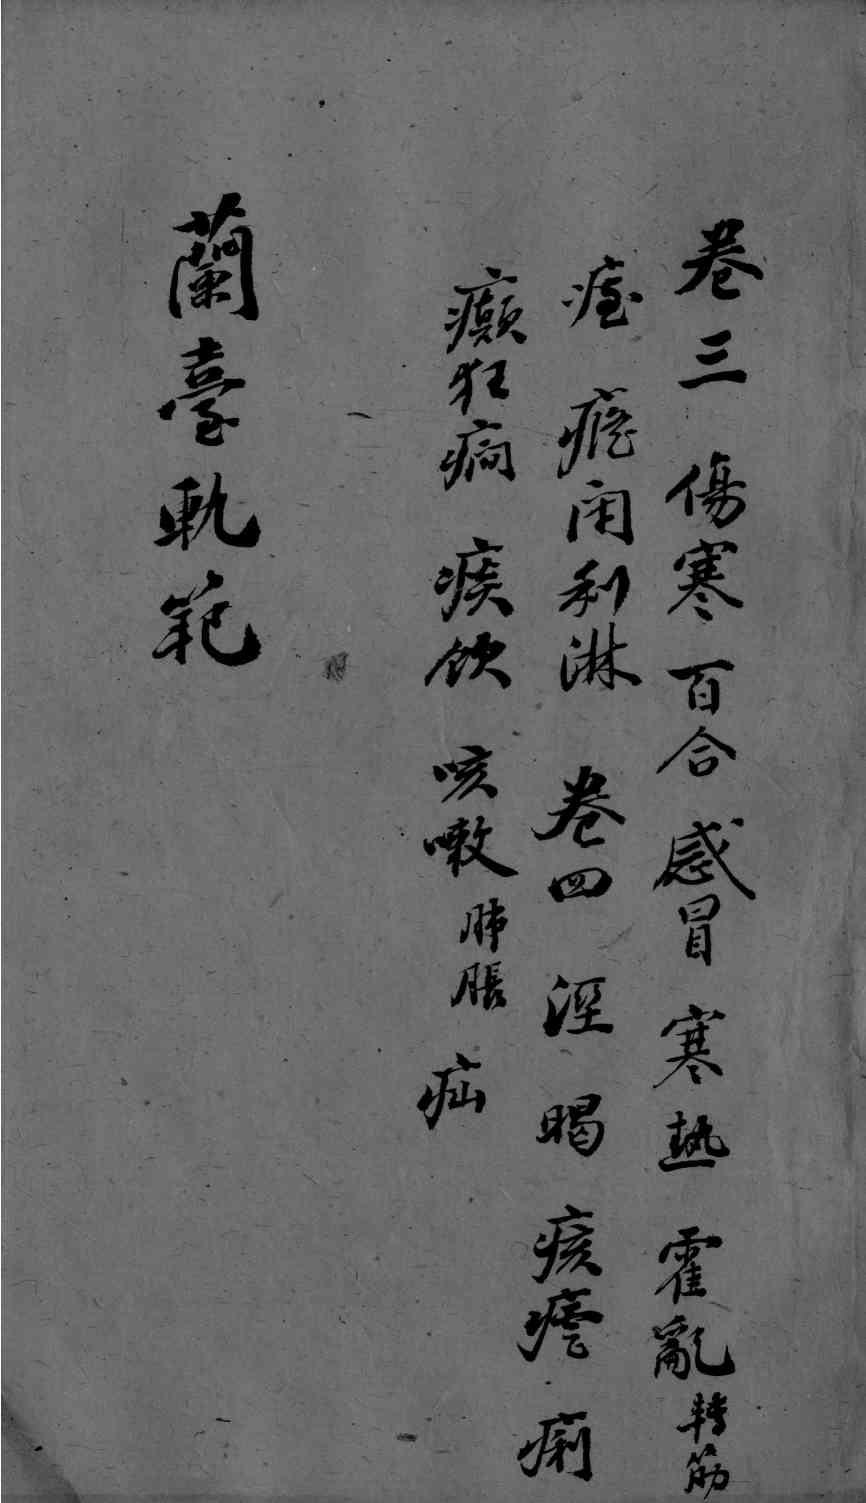 卷三 傷寒 百合 感冒 寒熱 霍亂 轉筋
痓 癃閉利淋 卷四 溼 暍 痎瘧 痢
癲狂癇 痰飲 咳嗽 肺脹 疝
蘭臺軌範